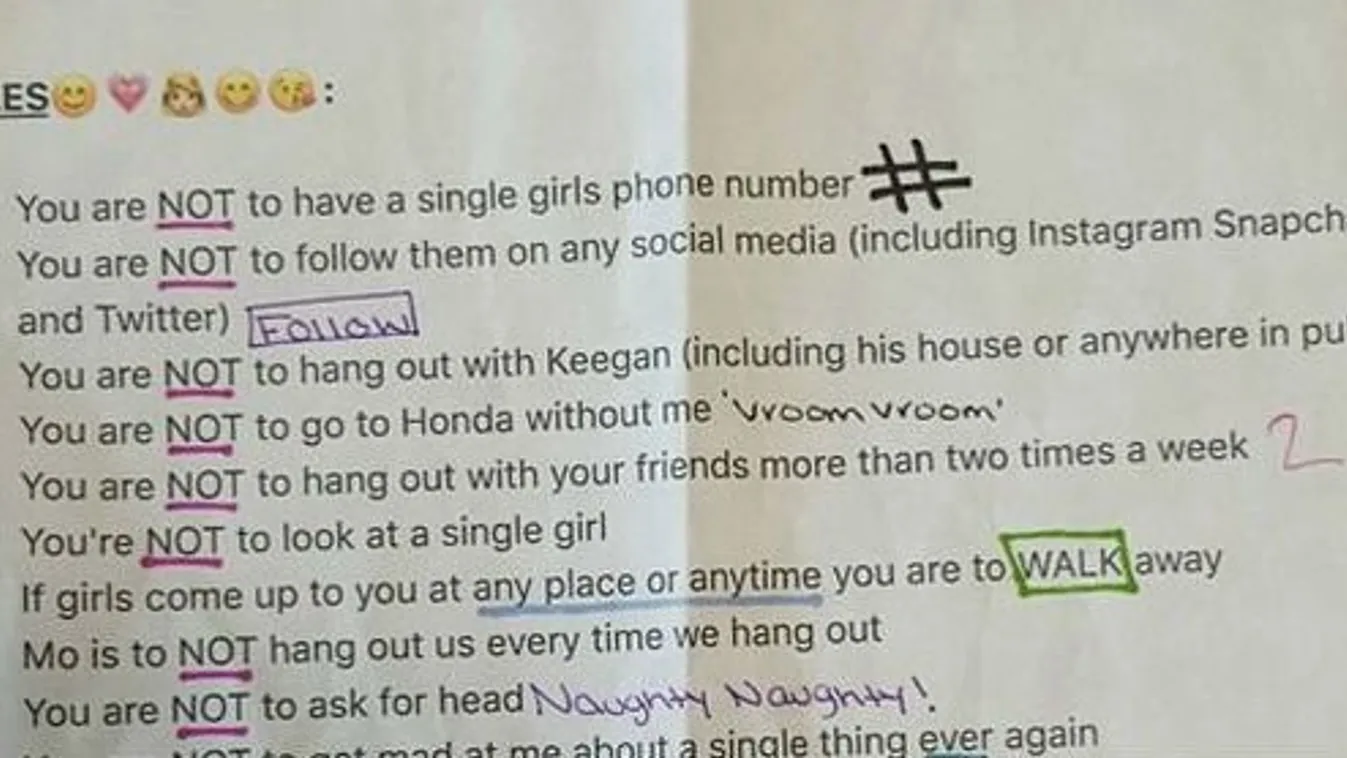 ES😊💗👧🏼😋😘:
You are NOT to have a single girls phone number #
You are NOT to follow them on any social media (including Instagram Snapch
and Twitter) Follow
You are NOT to hang out with Keegan (including his house or anywhere in pu
You are NOT to go to Honda without me 'vroom vroom'
You are NOT to hang out with your friends more than two times a week 2
You're NOT to look at a single girl
If girls come up to you at any place or anytime you are to WALK away
Mo is to NOT hang out us every time we hang out
You are NOT to ask for head Naughty Naughty!
NOT to get mad at me about a single thing ever again